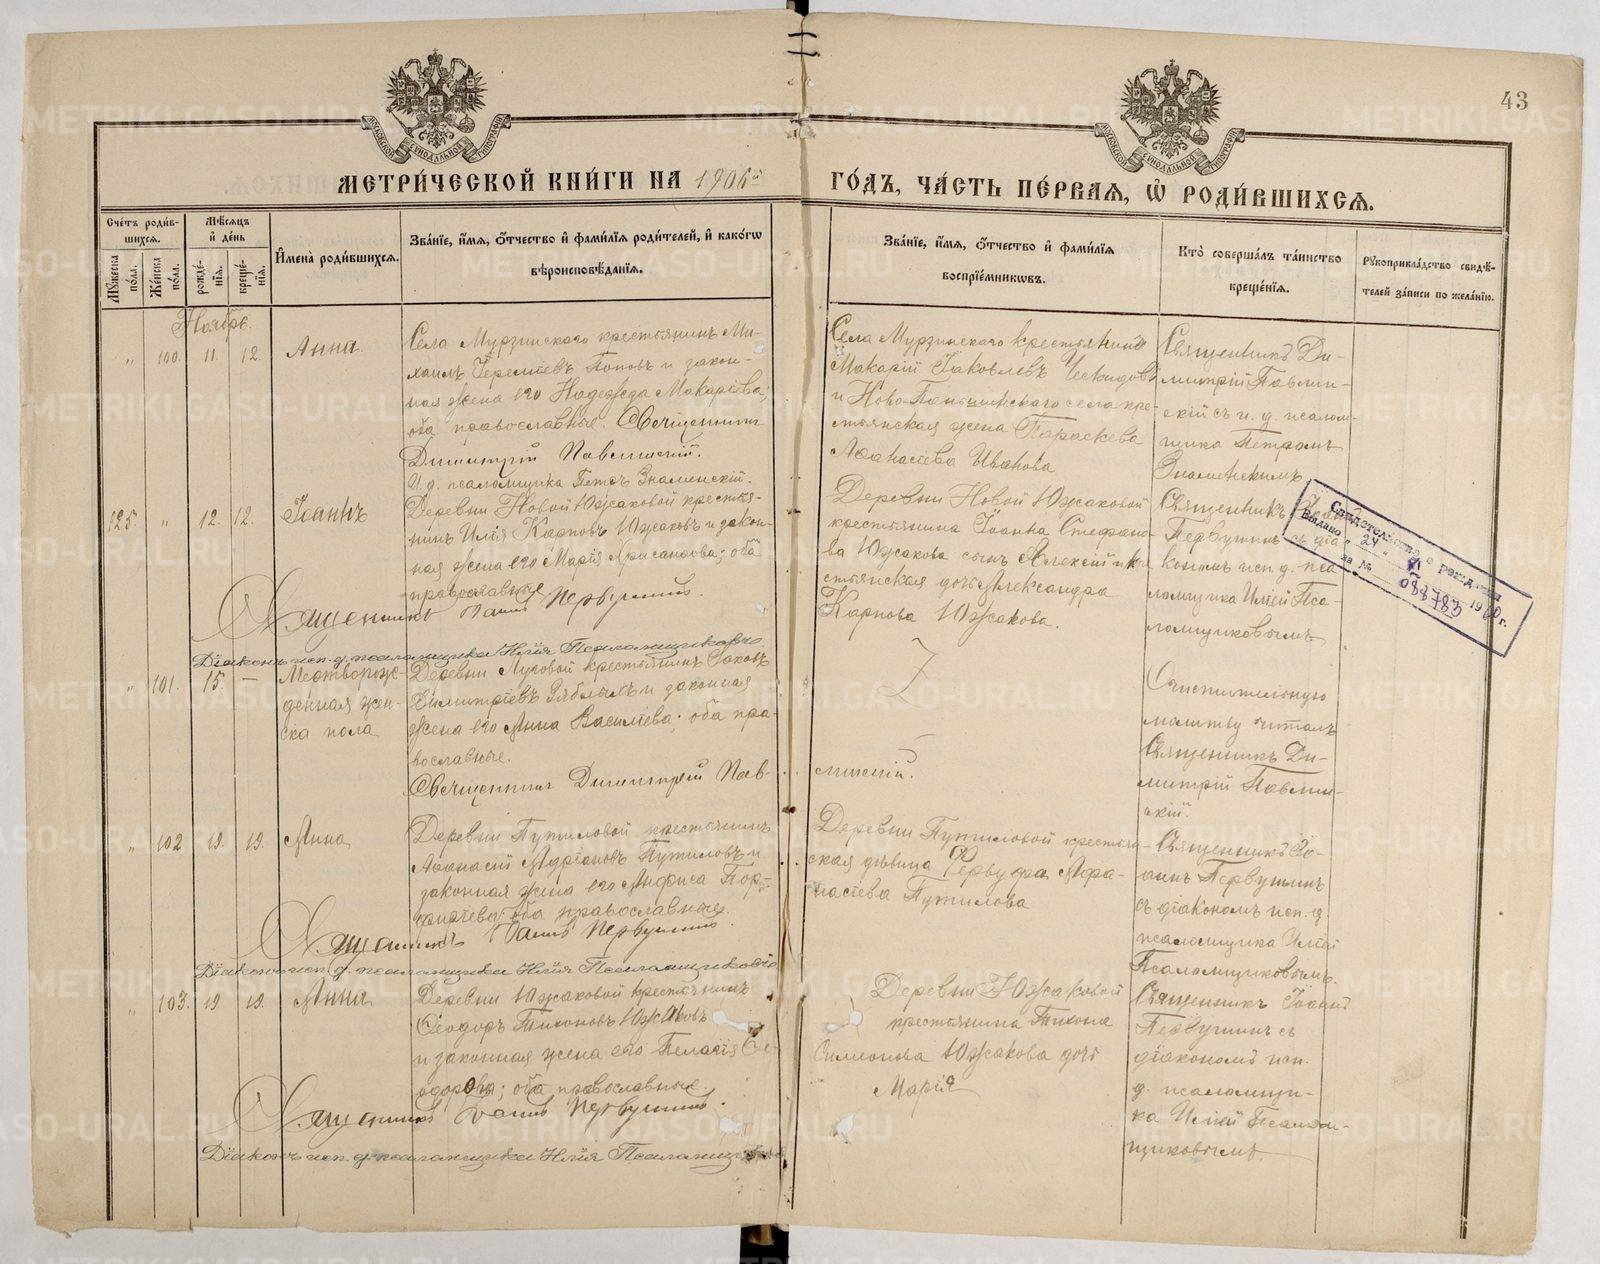 43
МОСКОВСКОЙ СѴНОДАЛЬНОЙ ТИПОГРАФІИ
МОСКОВСКОЙ СѴНОДАЛЬНОЙ ТИПОГРАФІИ
МЕТРИ́ЧЕСКОЙ КНИ́ГИ НА 1906й
ГО́ДЪ, ЧА́СТЬ ПЕ́РВАЯ, Ѽ РОДИ́ВШИХСЯ.
Сче́тъ роди́в-
шихся.
Мꙋ́жеска по́ла.
Же́нска по́ла.
Мѣ́сяцъ
и҆ де́нь
рожде́-
нїя.
креще́-
нїя.
И҆мена̀ роди́вшихся.
Зва́нїе, и҆́мя, ѻ҆́тчество и҆ фами́лїя роди́телей, и҆ како́гѡ
вѣроисповѣ́данїя.
Зва́нїе, и҆́мя, ѻ҆́тчество и҆ фами́лїя
воспрїе́мникѡвъ.
Кто̀ соверша́лъ та́инство
креще́нїя.
Рꙋкоприкла́дство свидѣ́-
телей за́писи по жела́нїю.
Ноябрь.
" 100. 11. 12. Анна
Села Мурзинскаго крестьянинъ Ми-
хаилъ Іереміевъ Поповъ и закон-
ная жена его Надежда Макаріева;
оба православные. Священникъ
Димитрій Павлинскій.
И. д. псаломщика Петръ Знаменскій.
Села Мурзинскаго крестьянинъ
Макарій Іаковлевъ Ческидовъ
и Ново-Паньшинскаго села кре-
стьянская жена Параскева
Аѳанасіева Иванова
Священникъ Ди-
митрій Павлин-
скій съ и. д. псалом-
щика Петромъ
Знаменскимъ
125. " 12. 12. Іоаннъ
Деревни Новой Южаковой крестья-
нинъ Илія Карповъ Южаковъ и закон-
ная жена его Марія Хрисанѳова; оба
православные
Священникъ Іоаннъ Первушинъ.
Діаконъ исп. д. псаломщика Илія Псаломщиковъ
Деревни Новой Южаковой
крестьянина Іоанна Стефано-
ва Южакова сынъ Алексій и кре-
стьянская дочь Александра
Карпова Южакова.
Священникъ Іоаннъ
Первушинъ съ діа-
кономъ исп. д. пса-
ломщика Иліей Пса-
ломщиковымъ
Свидетельство о рождении
Выдано " 24 "
за № 088783 1960 г.
" 101. 15. — Мертворож-
денная жен-
ска пола
Деревни Луговой крестьянинъ Іаковъ
Димитріевъ Зяблымъ и законная
жена его Анна Василіева; оба пра-
вославные.
Священникъ Димитрій Пав-
линскій.
Очистительную
молитву читалъ
Священникъ Ди-
митрій Павлин-
скій.
" 102 19. 19. Анна
Деревни Путиловой крестьянинъ
Аѳанасій Маріановъ Путиловъ и
законная жена его Анфиса Пор-
фиріева; оба православные.
Священникъ Іоаннъ Первушинъ.
Діаконъ исп. д. псаломщика Илія Псаломщиковъ
Деревни Путиловой крестьян-
ская дѣвица Ѳервуѳа Аѳа-
насіева Путилова
Священникъ Іо-
аннъ Первушинъ
съ діакономъ исп. д.
псаломщика Иліей
Псаломщиковымъ.
" 103. 19. 19. Анна
Деревни Южаковой крестьянинъ
Ѳеодоръ Тихоновъ Южаковъ
и законная жена его Пелагія Ѳе-
одорова; оба православные.
Священникъ Іоаннъ Первушинъ.
Діаконъ исп. д. псаломщика Илія Псаломщиковъ
Деревни Южаковой
крестьянина Тихона
Симеонова Южакова дочь
Марія
Священникъ Іоаннъ
Первушинъ съ
діакономъ исп.
д. псаломщи-
ка Иліей Псалом-
щиковымъ.
METRIKI.GASO-URAL.RU